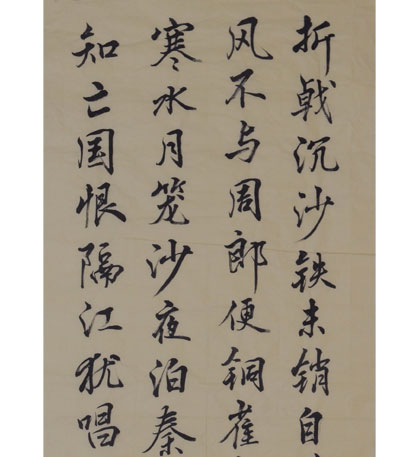 折戟沉沙铁未销自
风不与周郎便铜雀
寒水月笼沙夜泊秦
知亡国恨隔江犹唱